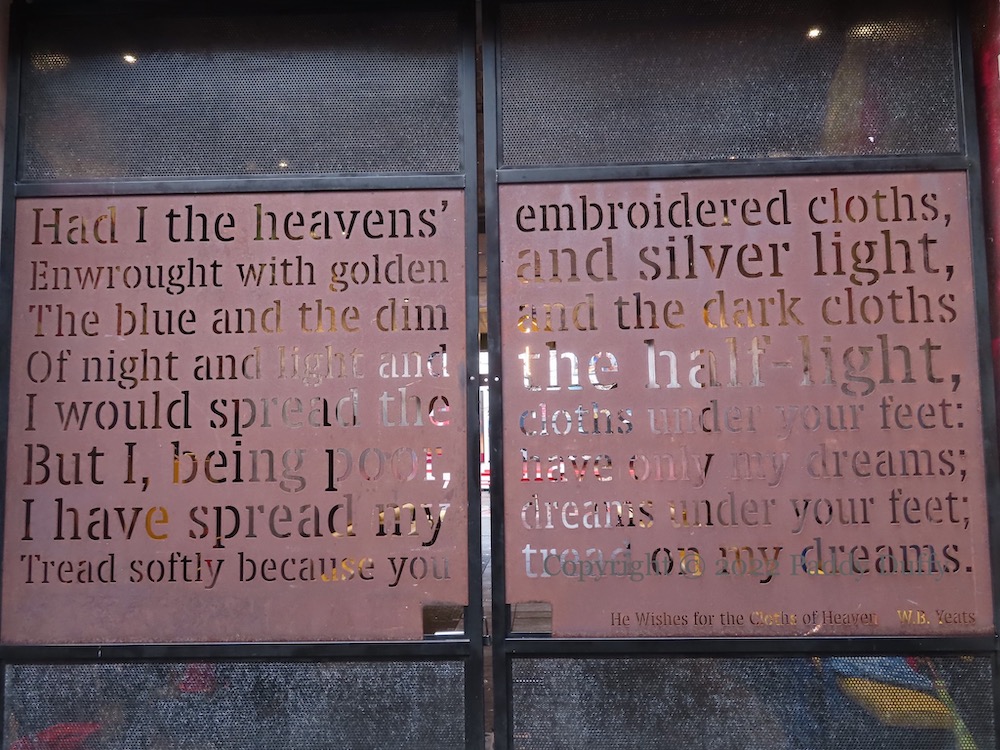 Had I the heavens’ embroidered cloths,
Enwrought with golden and silver light,
The blue and the dim and the dark cloths
Of night and light and the half-light,
I would spread the cloths under your feet:
But I, being poor, have only my dreams;
I have spread my dreams under your feet;
Tread softly because you tread on my dreams.
Copyright © 2022 Paddy
He Wishes for the Cloths of Heaven W.B. Yeats